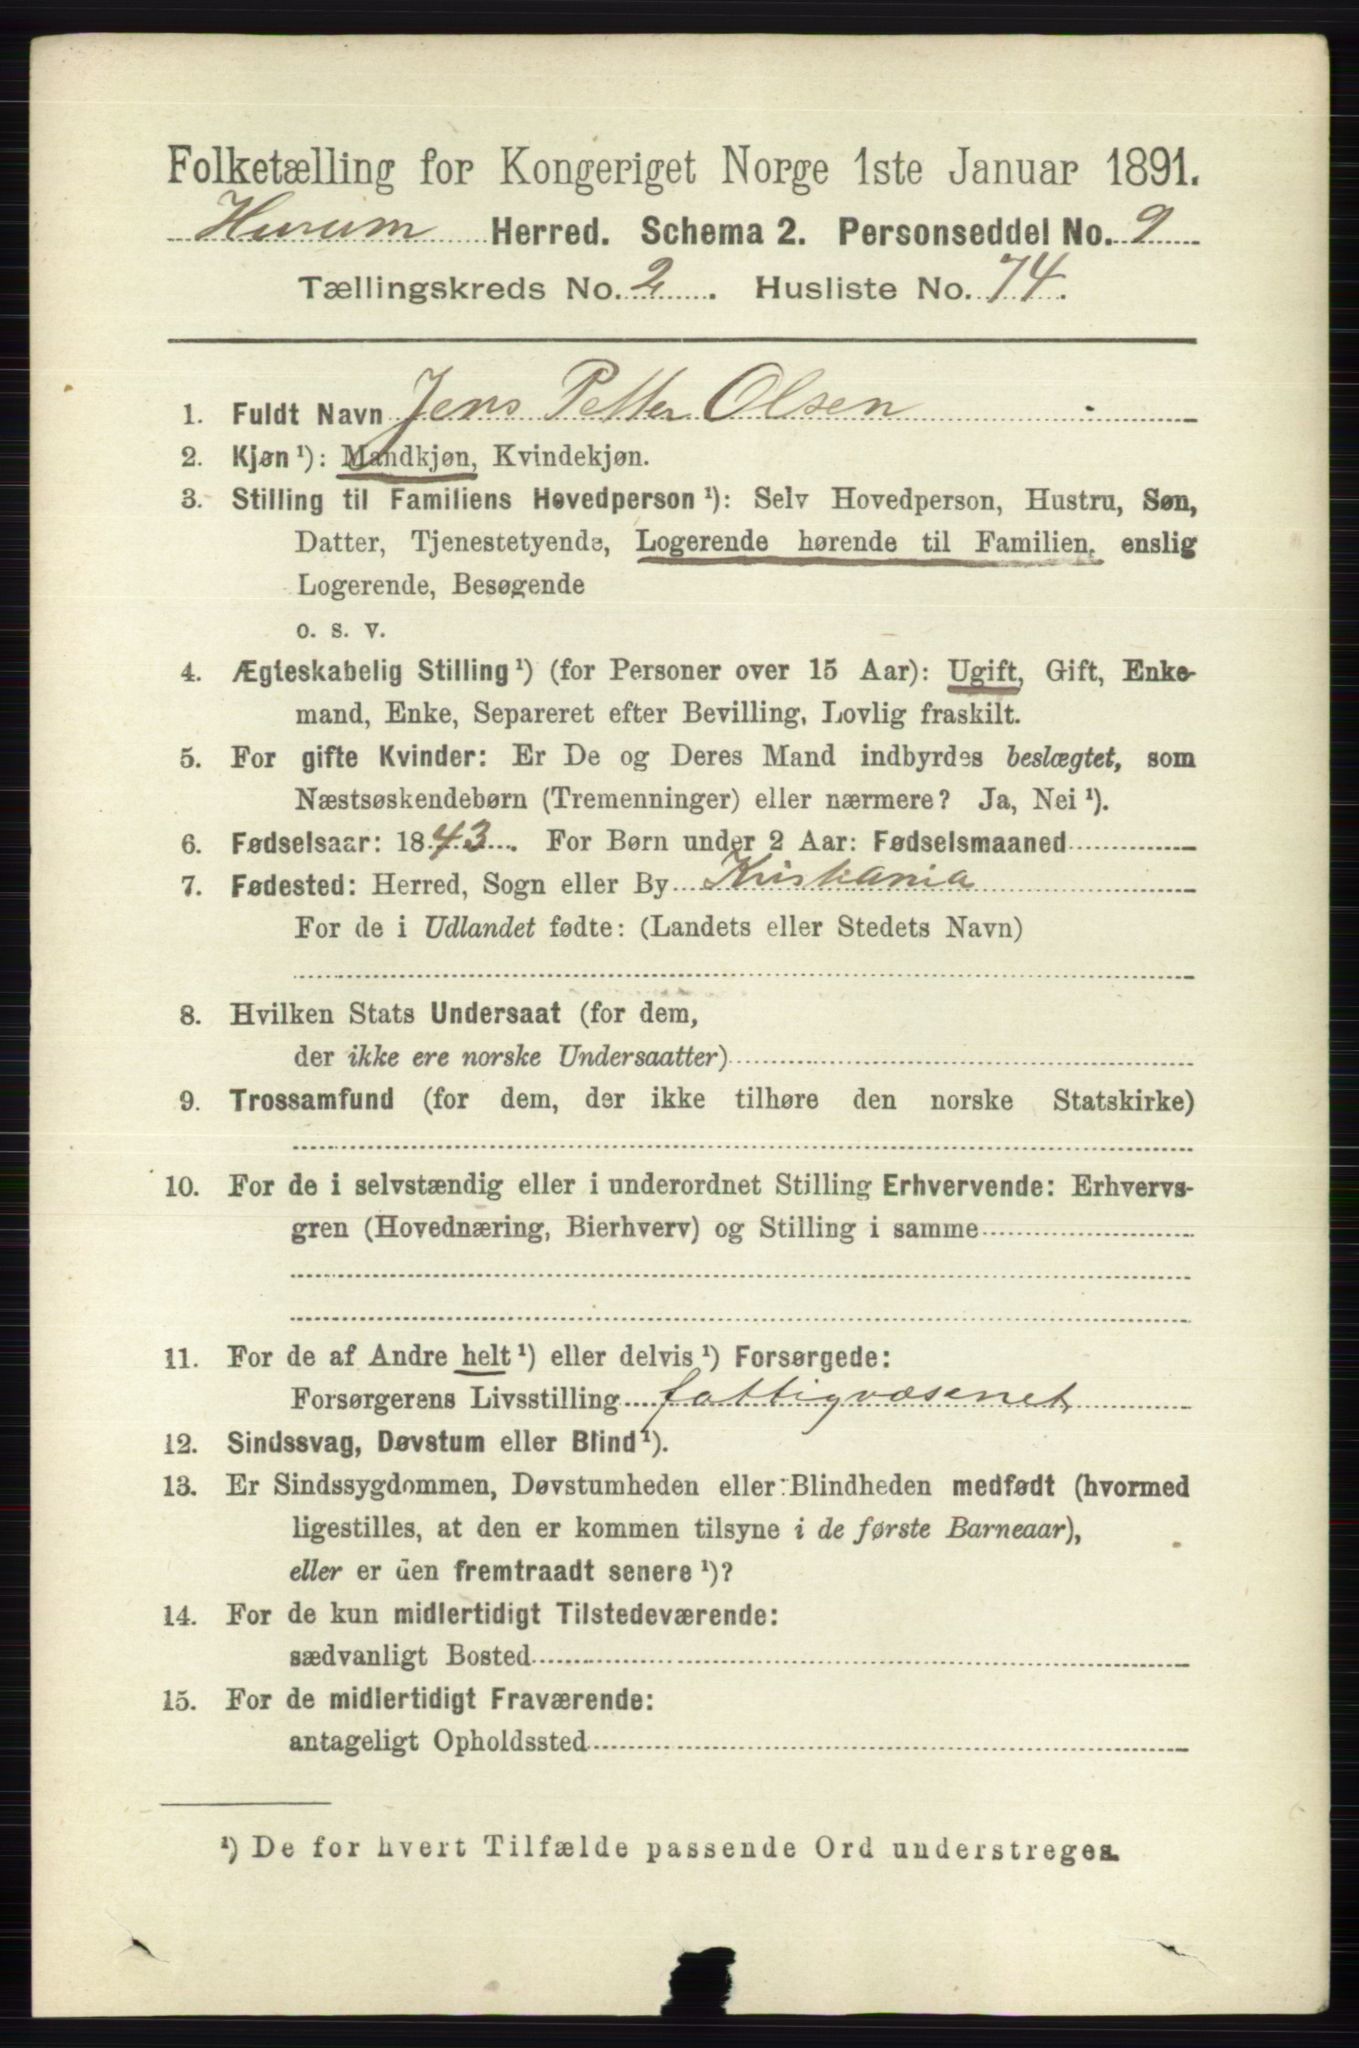 Folketælling for Kongeriget Norge 1ste Januar 1891.
Hurum Herred. Schema 2. Personseddel No. 9
Tællingskreds No. 2. Husliste No. 74.
1. Fuldt Navn Jens Petter Olsen
2. Kjøn ¹): Mandkjøn, Kvindekjøn.
3. Stilling til Familiens Hovedperson ¹): Selv Hovedperson, Hustru, Søn,
Datter, Tjenestetyende, Logerende hørende til Familien, enslig
Logerende, Besøgende
o. s. v.
4. Ægteskabelig Stilling ¹) (for Personer over 15 Aar): Ugift, Gift, Enke-
mand, Enke, Separeret efter Bevilling, Lovlig fraskilt.
5. For gifte Kvinder: Er De og Deres Mand indbyrdes beslægtet, som
Næstsøskendebørn (Tremenninger) eller nærmere? Ja, Nei ¹).
6. Fødselsaar: 1843. For Børn under 2 Aar: Fødselsmaaned
7. Fødested: Herred, Sogn eller By Kristiania
For de i Udlandet fødte: (Landets eller Stedets Navn)
8. Hvilken Stats Undersaat (for dem,
der ikke ere norske Undersaatter)
9. Trossamfund (for dem, der ikke tilhøre den norske Statskirke)
10. For de i selvstændig eller i underordnet Stilling Erhvervende: Erhvervs-
gren (Hovednæring, Bierhverv) og Stilling i samme
11. For de af Andre helt ¹) eller delvis ¹) Forsørgede:
Forsørgerens Livsstilling fattigvæsenet
12. Sindssvag, Døvstum eller Blind ¹).
13. Er Sindssygdommen, Døvstumheden eller Blindheden medfødt (hvormed
ligestilles, at den er kommen tilsyne i de første Barneaar),
eller er den fremtraadt senere ¹)?
14. For de kun midlertidigt Tilstedeværende:
sædvanligt Bosted
15. For de midlertidigt Fraværende:
antageligt Opholdssted
¹) De for hvert Tilfælde passende Ord understreges.